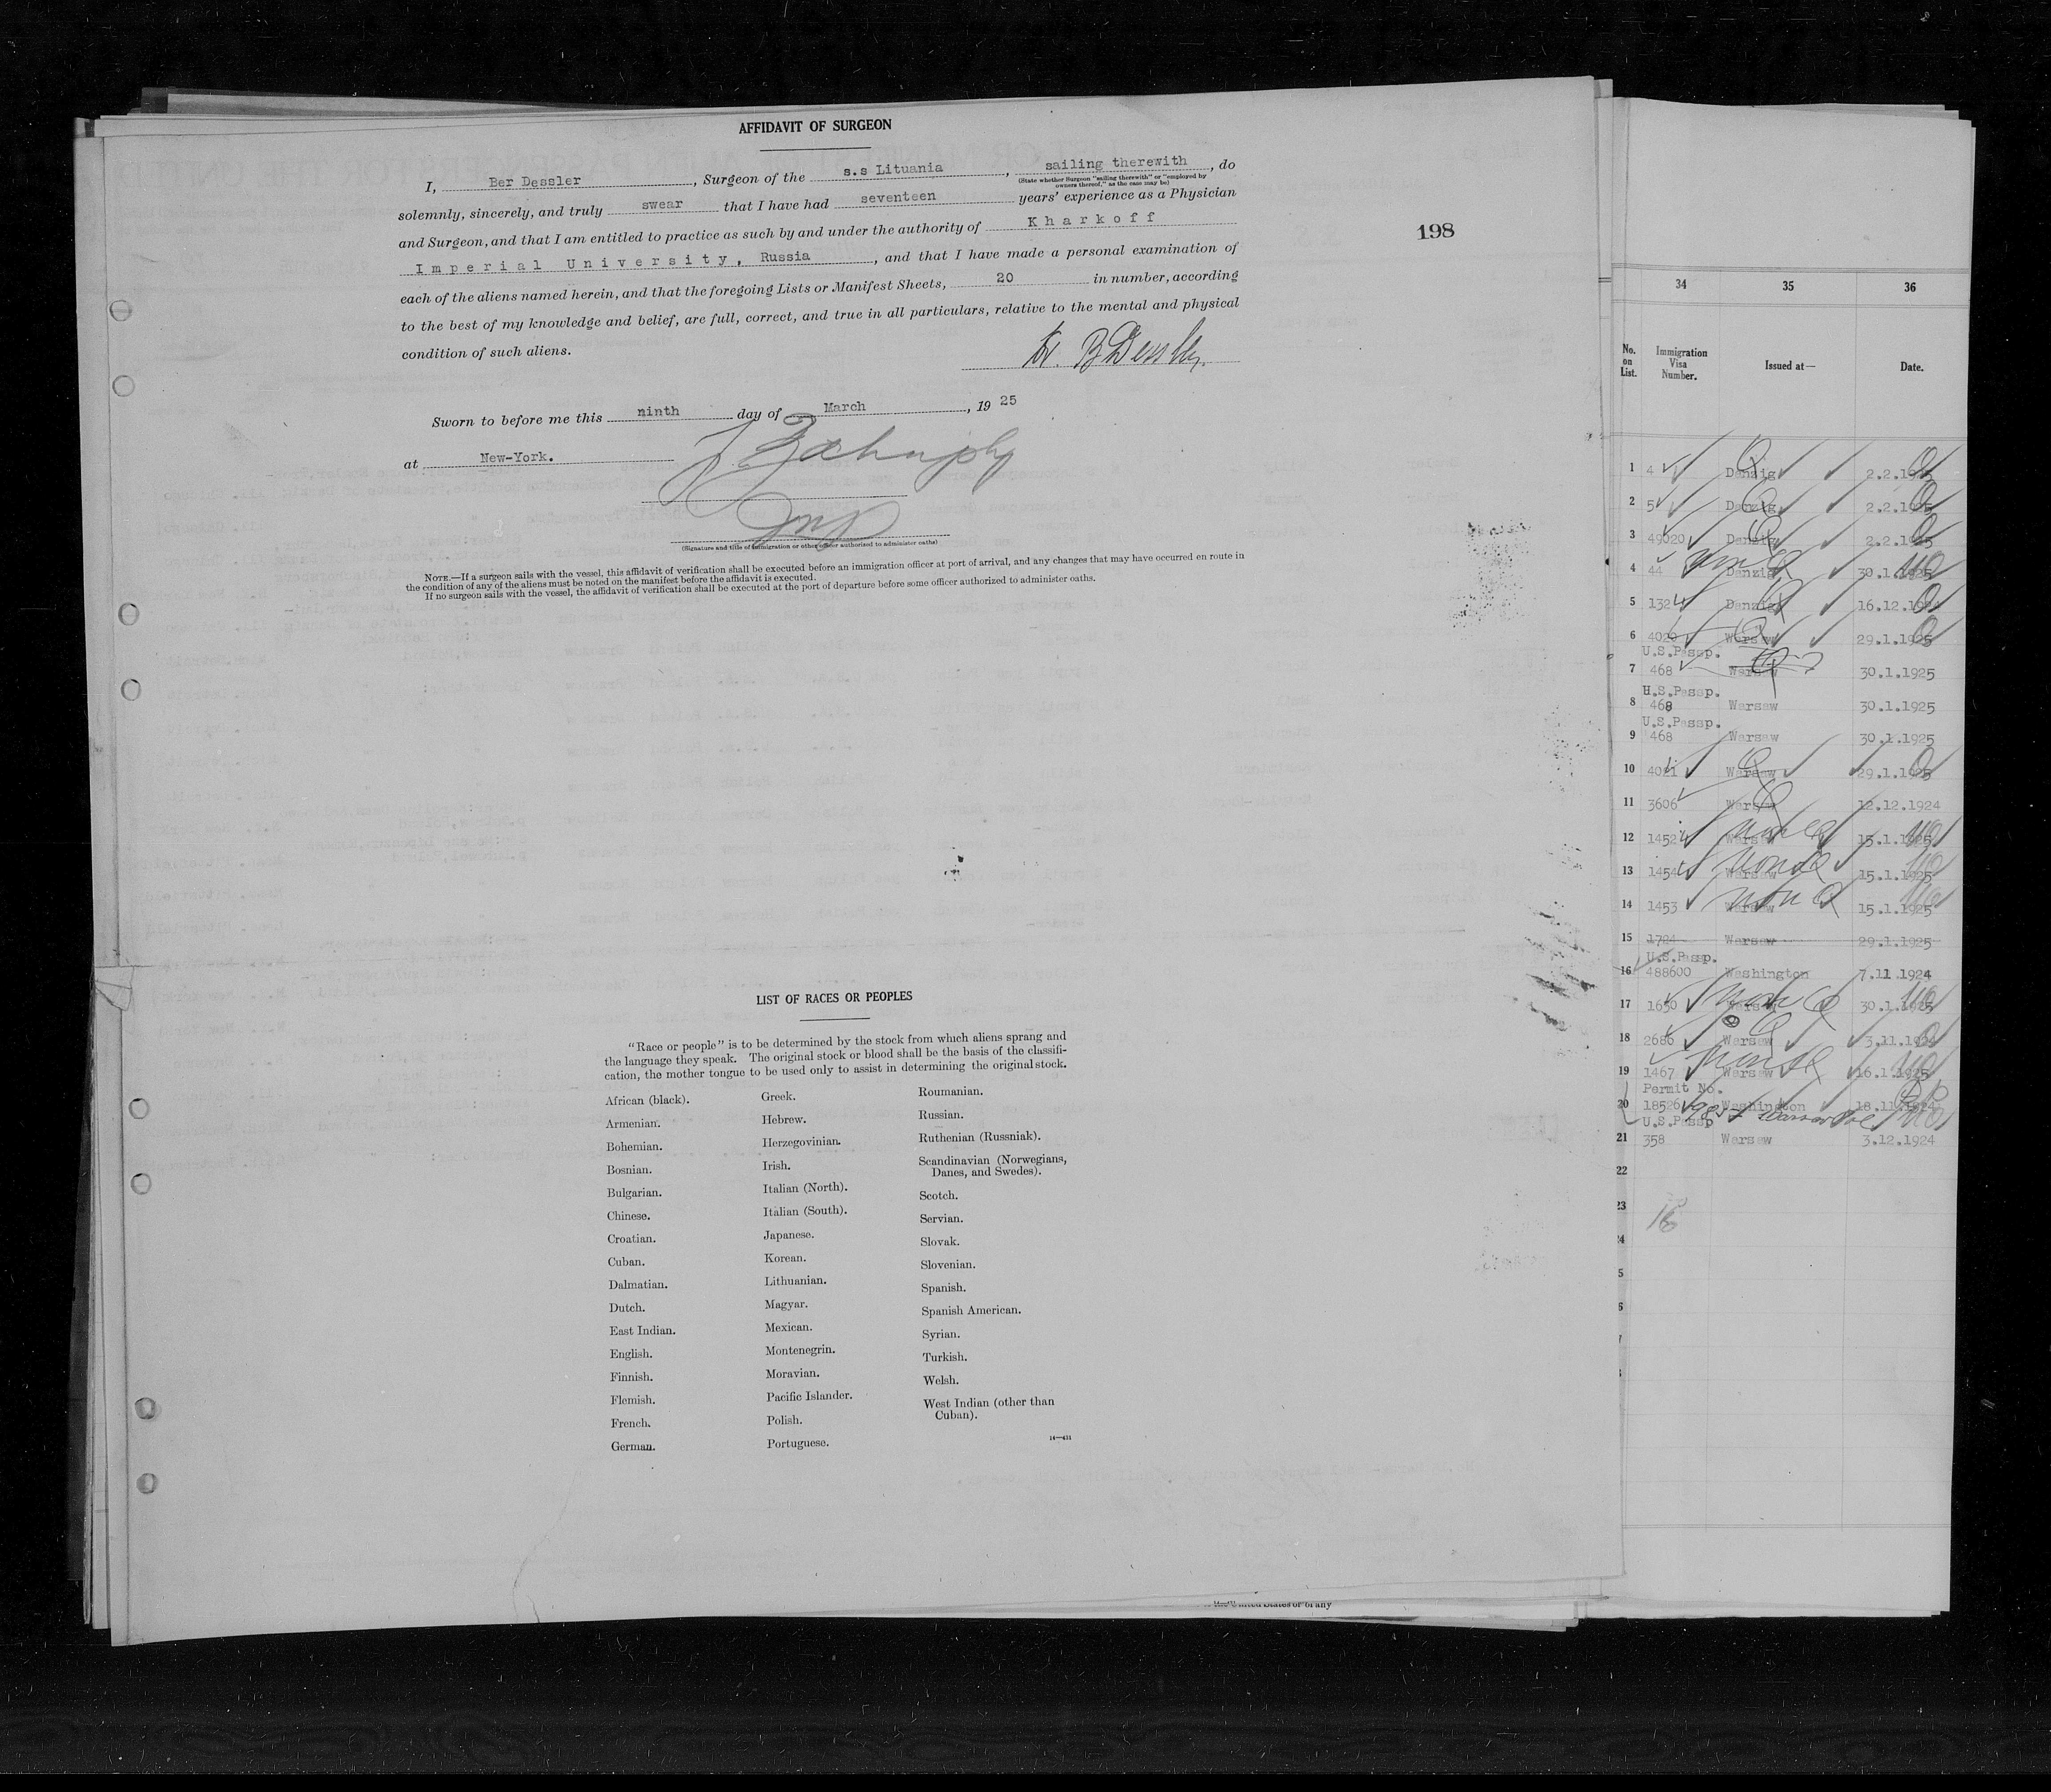 AFFIDAVIT OF SURGEON
I, Ber Dessler, Surgeon of the s.s Lituania, sailing therewith, do
(State whether Surgeon "sailing therewith" or "employed by
owners thereof," as the case may be)
solemnly, sincerely, and truly swear that I have had seventeen years' experience as a Physician
and Surgeon, and that I am entitled to practice as such by and under the authority of Kharkoff
Imperial University, Russia, and that I have made a personal examination of
each of the aliens named herein, and that the foregoing Lists or Manifest Sheets, 20 in number, according
to the best of my knowledge and belief, are full, correct, and true in all particulars, relative to the mental and physical
condition of such aliens.
Dr. B Dessler
Sworn to before me this ninth day of March, 1925
at New-York.
(Signature and title of immigration or other officer authorized to administer oaths)
NOTE.—If a surgeon sails with the vessel, this affidavit of verification shall be executed before an immigration officer at port of arrival, and any changes that may have occurred en route in
the condition of any of the aliens must be noted on the manifest before the affidavit is executed.
If no surgeon sails with the vessel, the affidavit of verification shall be executed at the port of departure before some officer authorized to administer oaths.
198
LIST OF RACES OR PEOPLES
"Race or people" is to be determined by the stock from which aliens sprang and
the language they speak. The original stock or blood shall be the basis of the classifi-
cation, the mother tongue to be used only to assist in determining the original stock.
African (black).
Armenian.
Bohemian.
Bosnian.
Bulgarian.
Chinese.
Croatian.
Cuban.
Dalmatian.
Dutch.
East Indian.
English.
Finnish.
Flemish.
French.
German.
Greek.
Hebrew.
Herzegovinian.
Irish.
Italian (North).
Italian (South).
Japanese.
Korean.
Lithuanian.
Magyar.
Mexican.
Montenegrin.
Moravian.
Pacific Islander.
Polish.
Portuguese.
Roumanian.
Russian.
Ruthenian (Russniak).
Scandinavian (Norwegians,
Danes, and Swedes).
Scotch.
Servian.
Slovak.
Slovenian.
Spanish.
Spanish American.
Syrian.
Turkish.
Welsh.
West Indian (other than
Cuban).
14—431
the United States or of any
34 35 36
No. on List. Immigration Visa Number. Issued at— Date.
1 4 Danzig 2.2.1925
2 5 Danzig 2.2.1925
3 49020 Danzig 2.2.1925
4 44 Danzig 30.1.1925
5 132 Danzig 16.12.1924
6 4020 Warsaw 29.1.1925
U.S.Passp.
7 468 Warsaw 30.1.1925
H.S.Passp.
8 468 Warsaw 30.1.1925
U.S.Passp.
9 468 Warsaw 30.1.1925
10 4021 Warsaw 29.1.1925
11 3606 Warsaw 12.12.1924
12 1452 Warsaw 15.1.1925
13 1454 Warsaw 15.1.1925
14 1453 Warsaw 15.1.1925
15 1724 Warsaw 29.1.1925
U.S.Passp.
16 488600 Washington 7.11.1924
17 1650 Warsaw 30.1.1925
18 2686 Warsaw 3.11.1924
19 1467 Warsaw 16.1.1925
Permit No.
20 18526 Washington 18.11.1924
U.S.Passp
21 358 Warsaw 3.12.1924
22
23
16